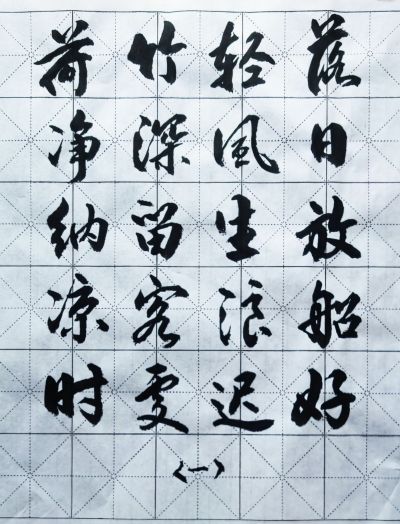 落日放船好
轻風生浪迟
竹深留客处
荷净纳凉时
〈一〉